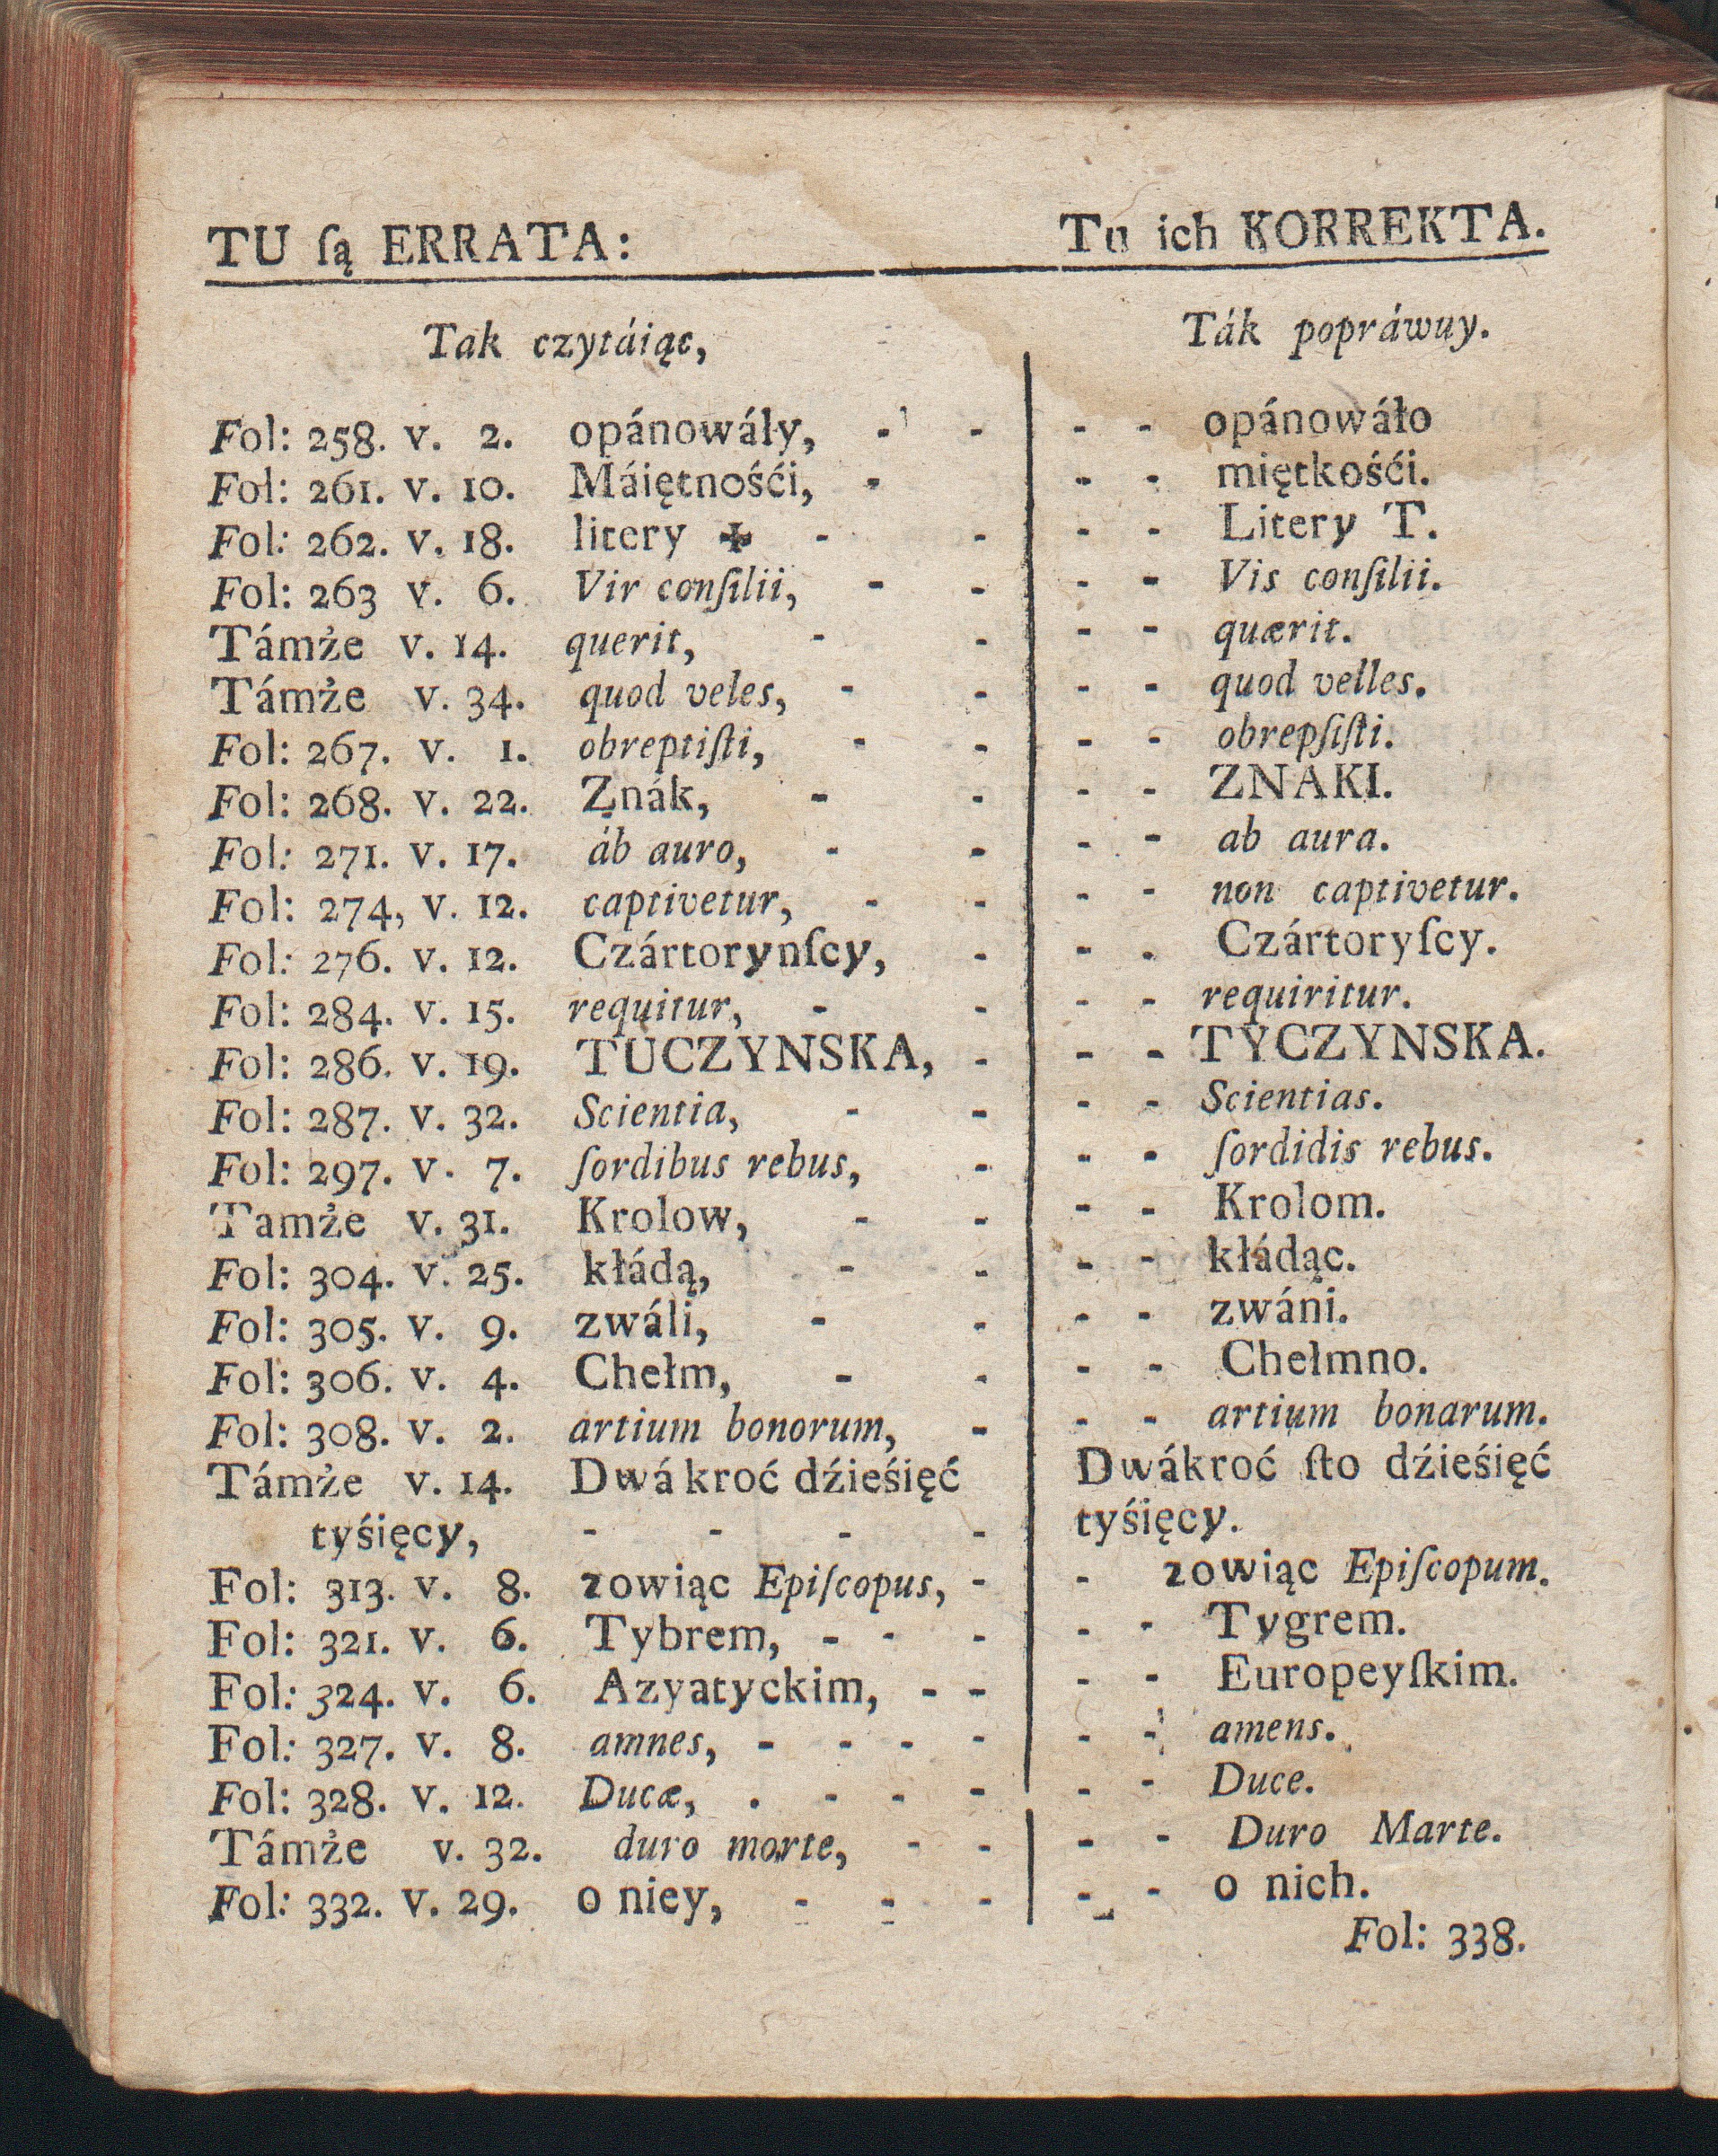 TU ſą ERRATA: Tu ich KORREKTA.
Tak czytáiąc, Ták popráwuy.
Fol: 258. v. 2. opánowály, - - - - opánowáło
Fol: 261. v. 10. Máiętnośći, - - - miętkośći.
Fol: 262. v. 18. litery ✠ - - - - Litery T.
Fol: 263 v. 6. Vir conſilii, - - - - Vis conſilii.
Támże v. 14. querit, - - - - quærit.
Támże v. 34. quod veles, - - - - quod velles.
Fol: 267. v. 1. obreptiſti, - - - - obrepſiſti.
Fol: 268. v. 22. Znák, - - - - ZNAKI.
Fol: 271. v. 17. áb auro, - - - - ab aura.
Fol: 274, v. 12. captivetur, - - - - non captivetur.
Fol: 276. v. 12. Czártorynſcy, - - - Czártoryſcy.
Fol: 284. v. 15. requitur, - - - - requiritur.
Fol: 286. v. 19. TUCZYNSKA, - - - TYCZYNSKA.
Fol: 287. v. 32. Scientia, - - - - Scientias.
Fol: 297. v. 7. ſordibus rebus, - - - ſordidis rebus.
Tamże v. 31. Krolow, - - - - Krolom.
Fol: 304. v. 25. kłádą, - - - - kłádąc.
Fol: 305. v. 9. zwáli, - - - - zwáni.
Fol: 306. v. 4. Chełm, - - - - Chełmno.
Fol: 308. v. 2. artium bonorum, - - - artium bonarum.
Támże v. 14. Dwá kroć dźieśięć Dwákroć ſto dźieśięć
tyśięcy, - - - - tyśięcy.
Fol: 313. v. 8. zowiąc Epiſcopus, - - zowiąc Epiſcopum.
Fol: 321. v. 6. Tybrem, - - - - - Tygrem.
Fol: 324. v. 6. Azyatyckim, - - - - Europeyſkim.
Fol: 327. v. 8. amnes, - - - - - - amens.
Fol: 328. v. 12. Ducæ, . - - - - - Duce.
Támże v. 32. duro morte, - - - - Duro Marte.
Fol: 332. v. 29. o niey, - - - - - o nich.
Fol: 338.